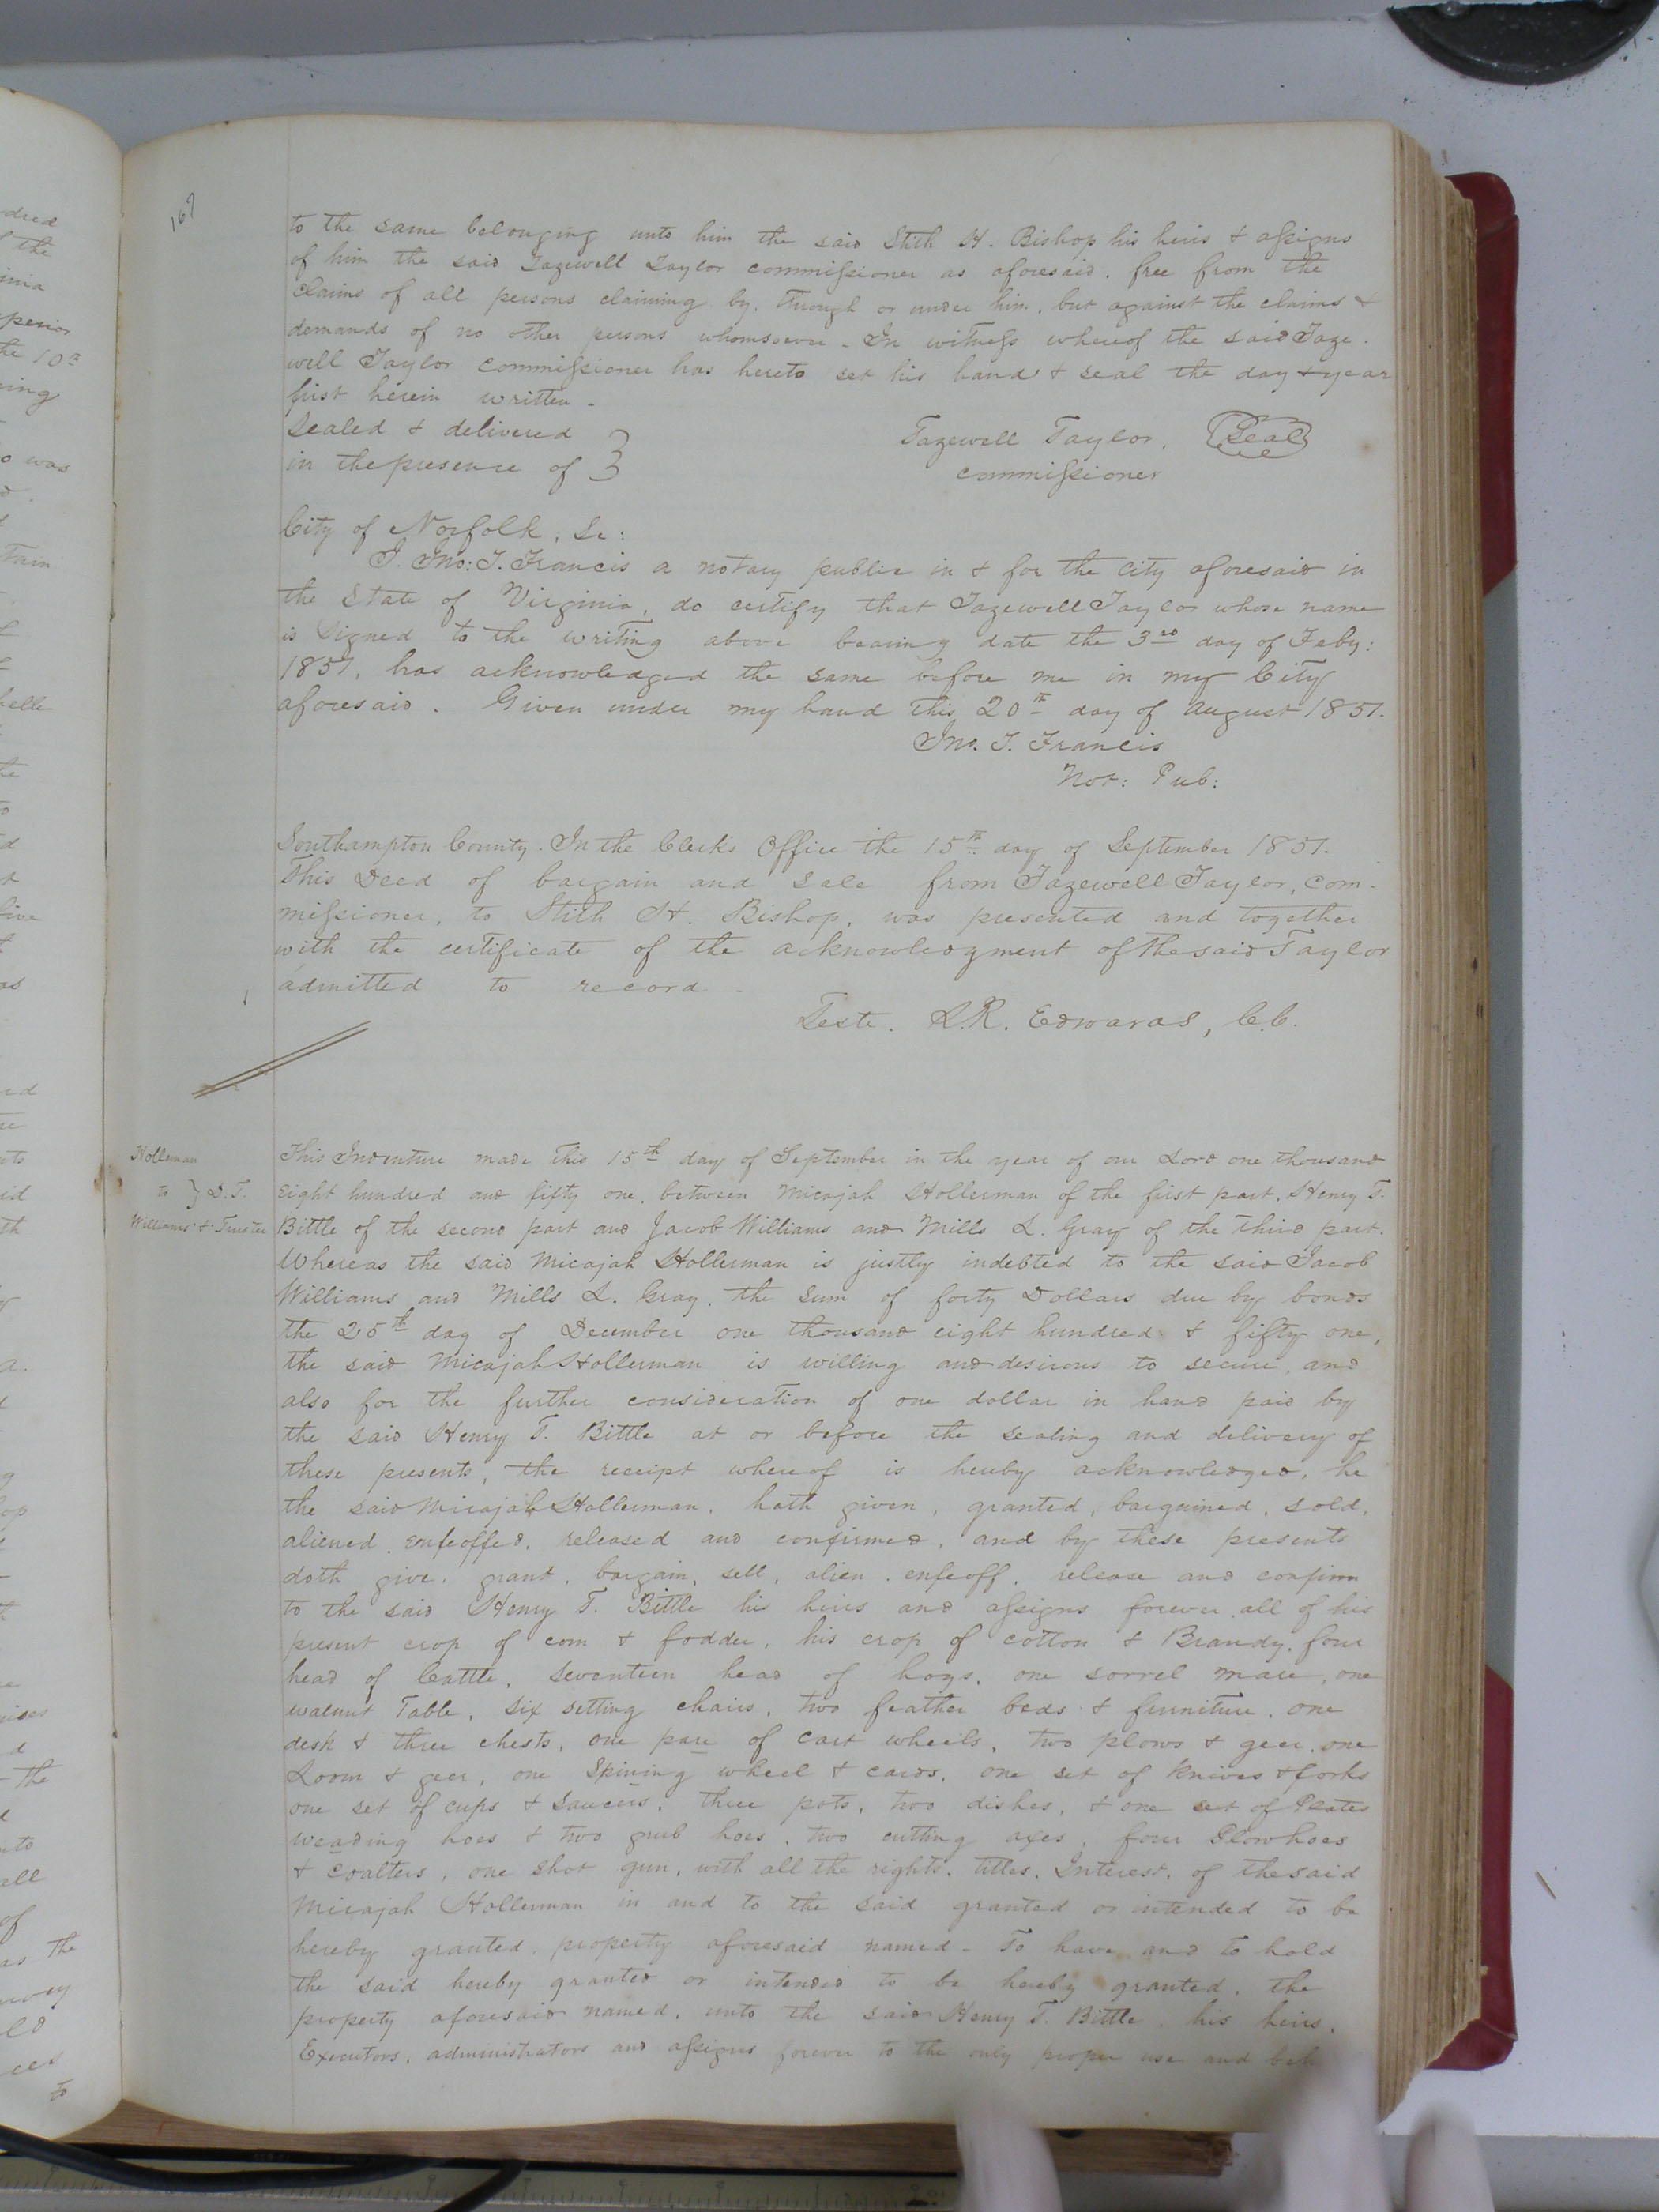 167
to the same belonging unto him the said Stith H. Bishop his heirs & assigns
of him the said Tazewell Taylor commissioner as aforesaid. free from the
claims of all persons claiming by, through or under him, but against the claims &
demands of no other persons whomsoever - In witness whereof the said Taze-
well Taylor commissioner has hereto set his hand & seal the day & year
first herein written -
Sealed & delivered
in the presence of
Tazewell Taylor. Seal
commissioner
City of Norfolk, Sc:
I. Jno: T. Francis a notary public in & for the City aforesaid in
the State of Virginia, do certify that Tazewell Taylor whose name
is signed to the writing above bearing date the 3rd day of Feby:
1851, has acknowledged the same before me in my City
aforesaid. Given under my hand this 20th day of August 1851.
Jno. T. Francis
Not: Pub:
Southampton County. In the Clerk's Office the 15th day of September 1851.
This Deed of bargain and sale from Tazewell Taylor, com-
missioner, to Stith H. Bishop, was presented and together
with the certificate of the acknowledgment of the said Taylor
admitted to record -
Teste. L.R. Edwards, C.C.
Holleman
to } D.T.
Williams & Trustee
This Indenture made this 15th day of September in the year of our Lord one thousand
Eight hundred and fifty one, between Micajah Holleman of the first part, Henry T.
Bittle of the second part and Jacob Williams and Mills L. Gray of the third part.
Whereas the said Micajah Holleman is justly indebted to the said Jacob
Williams and Mills L. Gray, the sum of forty Dollars due by bonds
the 25th day of December one thousand eight hundred & fifty one,
the said Micajah Holleman is willing and desirous to secure, and
also for the further consideration of one dollar in hand paid by
the said Henry T. Bittle at or before the sealing and delivery of
these presents, the receipt whereof is hereby acknowledged, he
the said Micajah Holleman, hath given, granted, bargained, sold,
aliened, enfeoffed, released and confirmed, and by these presents
doth give, grant, bargain, sell, alien, enfeoff, release and confirm
to the said Henry T. Bittle his heirs and assigns forever, all of his
present crop of corn & fodder, his crop of cotton & Brandy, four
head of Cattle, Seventeen head of hogs, one sorrel mare, one
walnut Table, six setting chairs, two feather beds & furniture, one
desk & three chests, one pare of cart wheels, two plows & geer, one
Loom & geer, one Spining wheel & cards, one set of knives & forks
one set of cups & saucers, three pots, two dishes, & one set of Plates
weading hoes & two grub hoes, two cutting axes, four Plowhoes
& Coalters, one shot gun, with all the rights, titles, Interest, of the said
Micajah Holleman in and to the said granted or intended to be
hereby granted, property aforesaid named - To have and to hold
the said hereby granted or intended to be hereby granted, the
property aforesaid named, unto the said Henry T. Bittle, his heirs,
Executors, administrators and assigns forever to the only proper use and beh